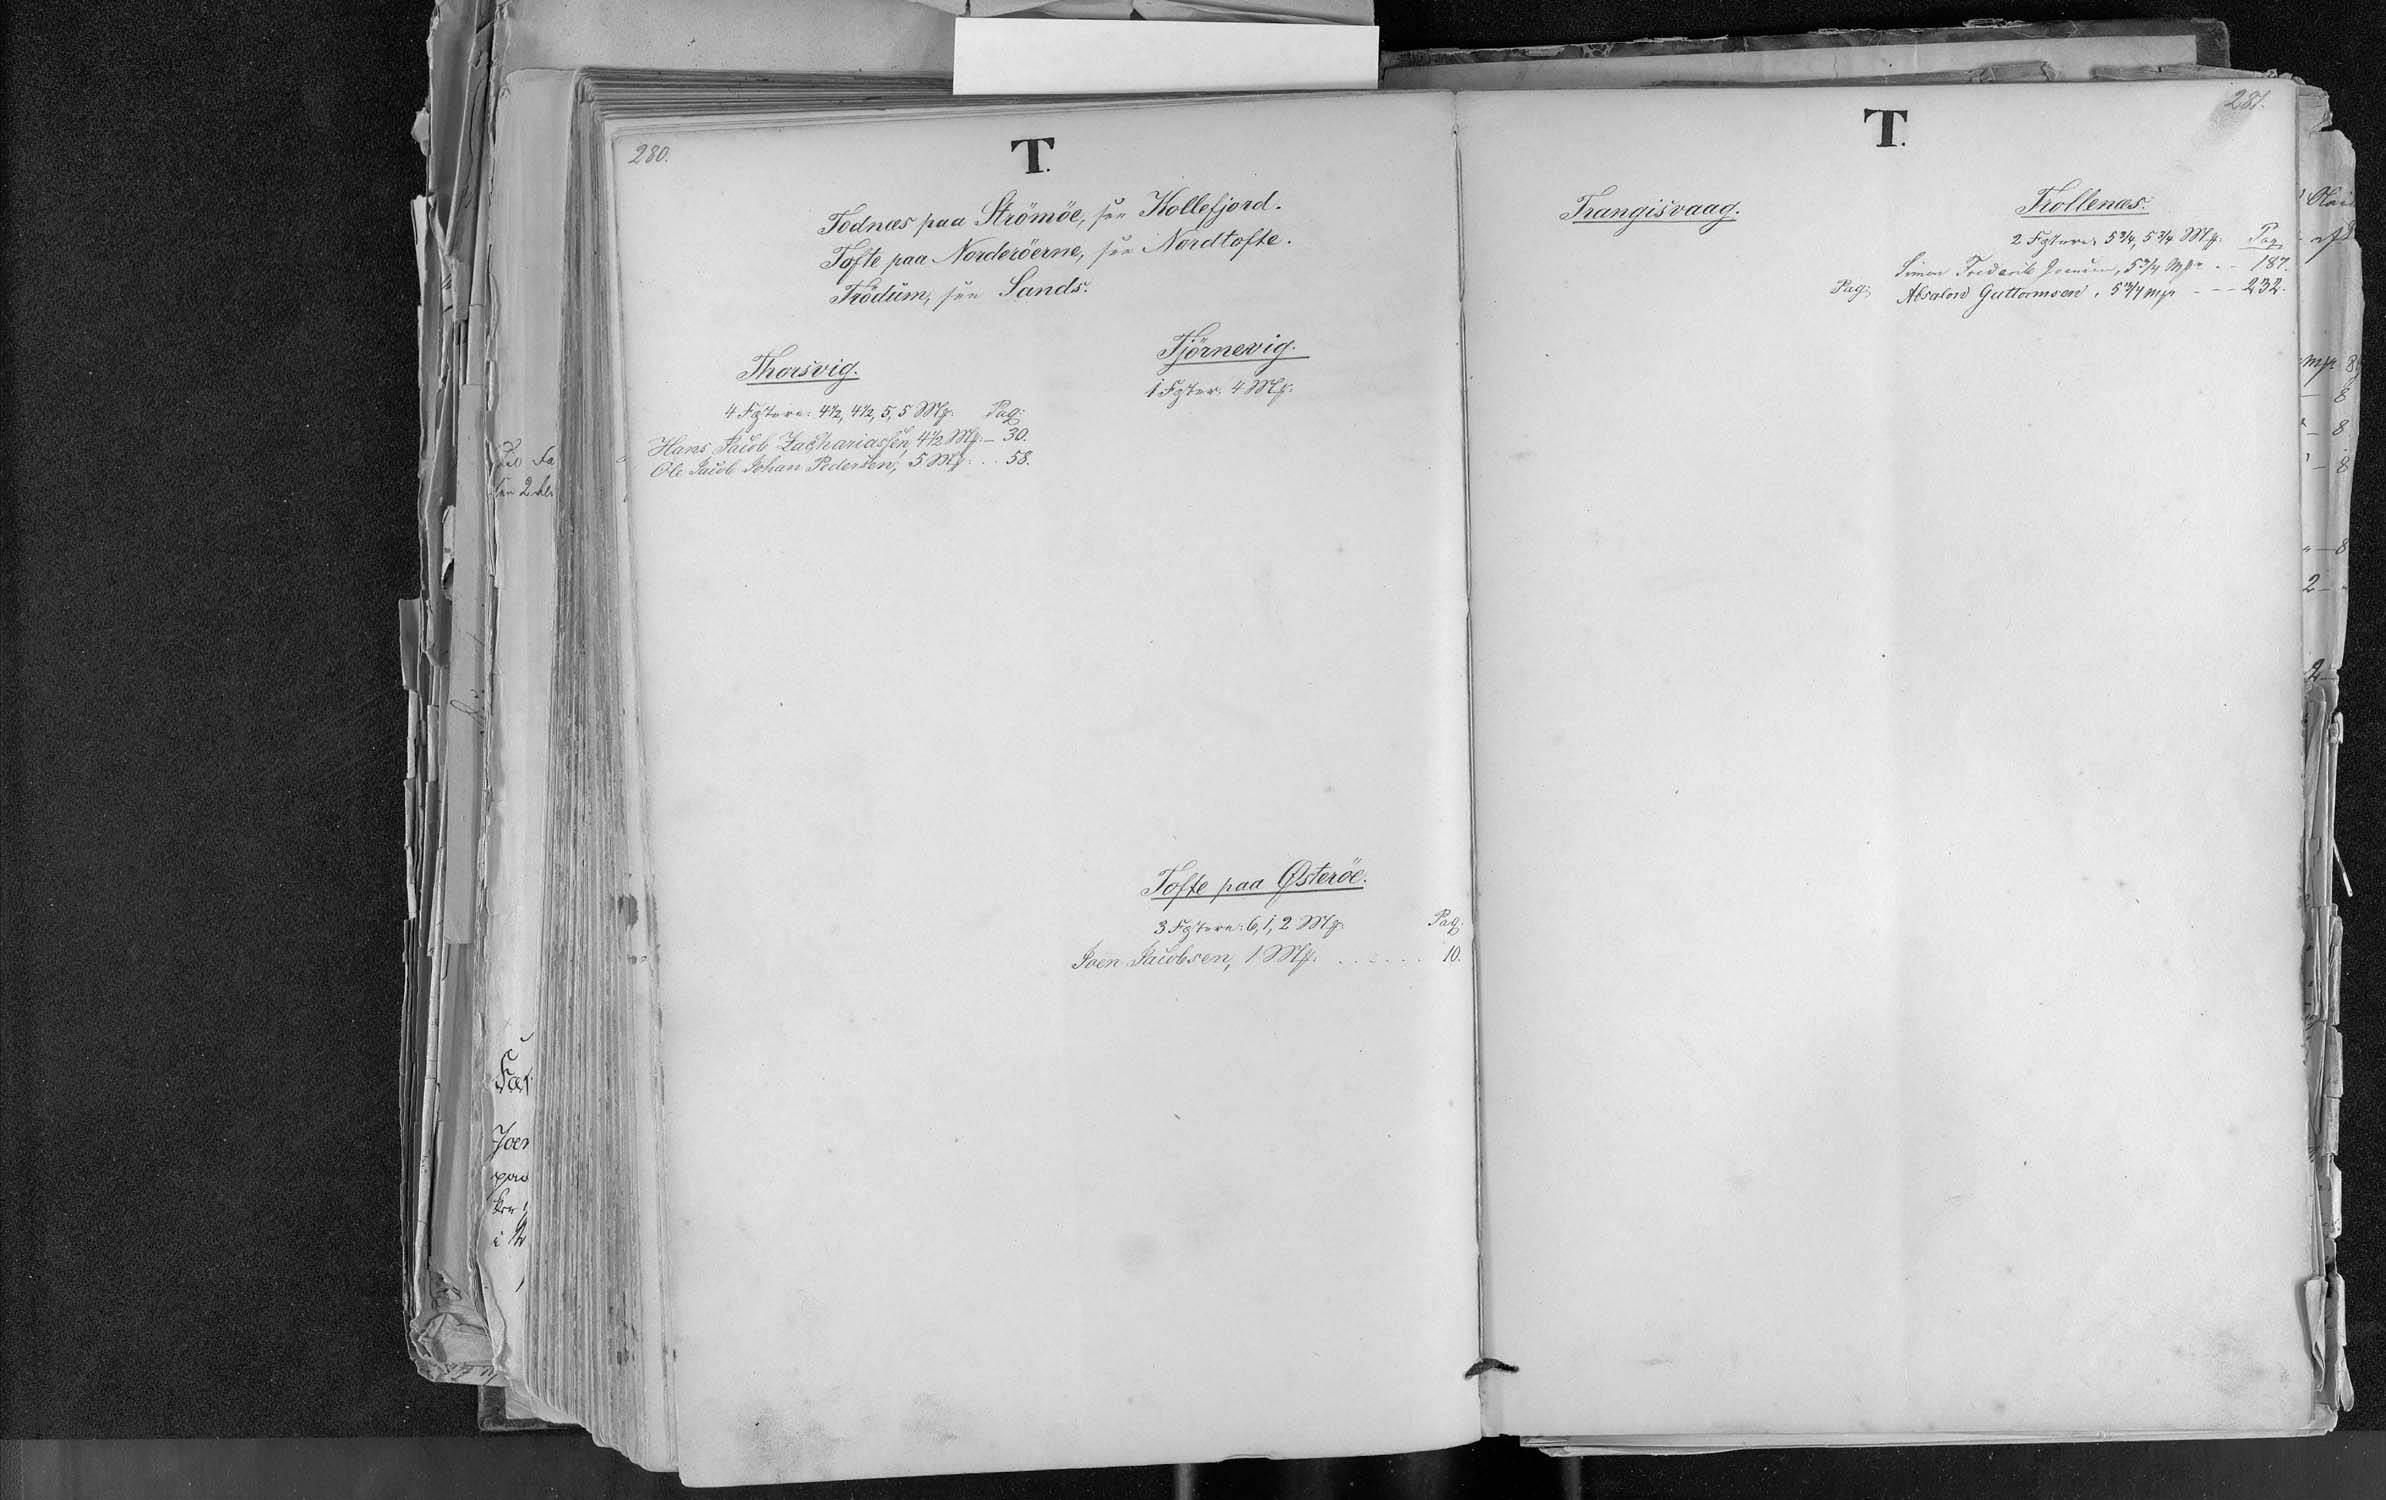 280.
T.
Todnæs paa Strömöe, see Kollefjord.
Tofte paa Norderöerne, see Nordtofte.
Trödum, see Sands.
Thorsvig.
4 Fæstere: 4½, 4½, 5, 5 Mk: Pag:
Hans Jacob Zachariassen, 4½ Mk: – 30.
Ole Jacob Johan Pedersen, 5 Mk: . . 58.
Tjörnevig.
1 Fæster: 4 Mk:
Tofte paa Østeröe.
3 Fæstere: 6, 1, 2 Mk: Pag:
Joen Jacobsen, 1 Mk: . . . . . . 10.
281.
T.
Trangisvaag.
Pag:
Trollenæs.
2 Fæstere: 5¾, 5¾ Mk: Pag
Simon Frederik Joensen, 5¾ Mk: – – 187.
Absalon Guttormsen, 5¾ Mk – – – 232.